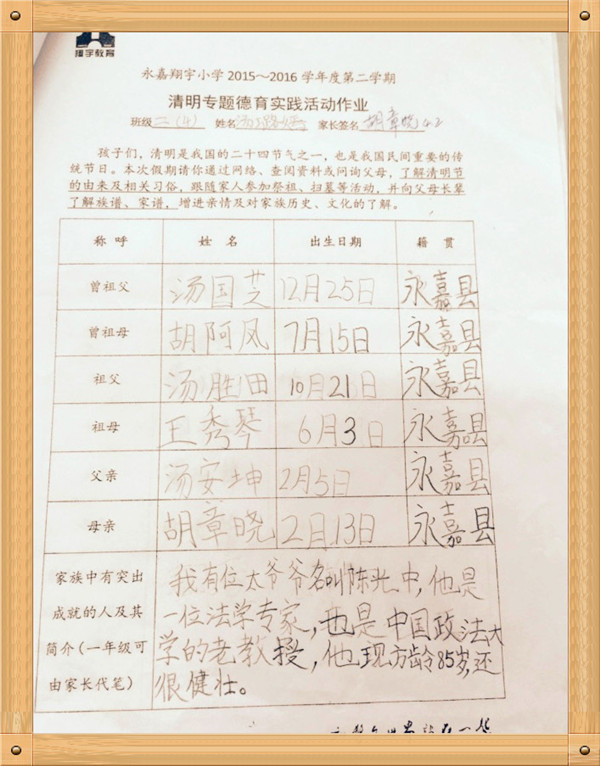 翔宇教育
永嘉翔宇小学 2015～2016 学年度第二学期
清明专题德育实践活动作业
班级 二（4） 姓名 汤 家长签名 胡章晓
孩子们，清明是我国的二十四节气之一，也是我国民间重要的传
统节日。本次假期请你通过网络、查阅资料或问询父母，了解清明节
的由来及相关习俗，跟随家人参加祭祖、扫墓等活动，并向父母长辈
了解族谱、家谱，增进亲情及对家族历史、文化的了解。
称 呼 姓 名 出生日期 籍 贯
曾祖父 汤国芝 12月25日 永嘉县
曾祖母 胡阿凤 7月15日 永嘉县
祖父 汤胜田 10月21日 永嘉县
祖母 王秀琴 6月3日 永嘉县
父亲 汤安坤 2月5日 永嘉县
母亲 胡章晓 2月13日 永嘉县
家族中有突出
成就的人及其
简介（一年级可
由家长代笔）
我有位太爷爷名叫陈光中，他是
一位法学专家，也是中国政法大
学的老教授，他现方龄85岁，还
很健壮。